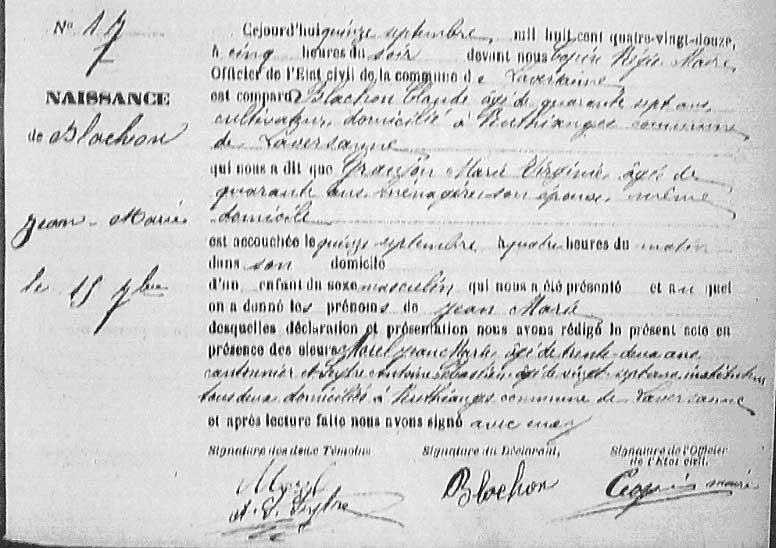 N° 17
NAISSANCE
de Blachon
Jean-Marie
le 15 7bre
Cejourd'hui quinze septembre, mil huit cent quatre-vingt-douze,
à cinq heures du soir devant nous Régis Maire
Officier de l'Etat civil de la commune de Laversanne
est comparu Blachon Claude âgé de quarante sept ans
cultivateur, domicilié à Ruthianges commune
de Laversanne
qui nous a dit que Granjon Marie Virginie âgée de
quarante ans ménagère son épouse même
domicile
est accouchée le quinze septembre à quatre heures du matin
dans son domicile
d'un enfant du sexe masculin qui nous a été présenté et au quel
on a donné les prénoms de Jean Marie
desquelles déclaration et présentation nous avons rédigé le présent acte en
présence des sieurs Morel Jean Marie âgé de trente deux ans
cantonnier et Seytre Antoine Sébastien âgé de vingt sept ans instituteur
tous deux domiciliés à Ruthianges commune de Laversanne
et après lecture faite nous avons signé avec eux
Signature des deux Témoins
Signature du Déclarant,
Signature de l'Officier
de l'Etat civil.
Morel
A. S. Seytre
Blachon
maire